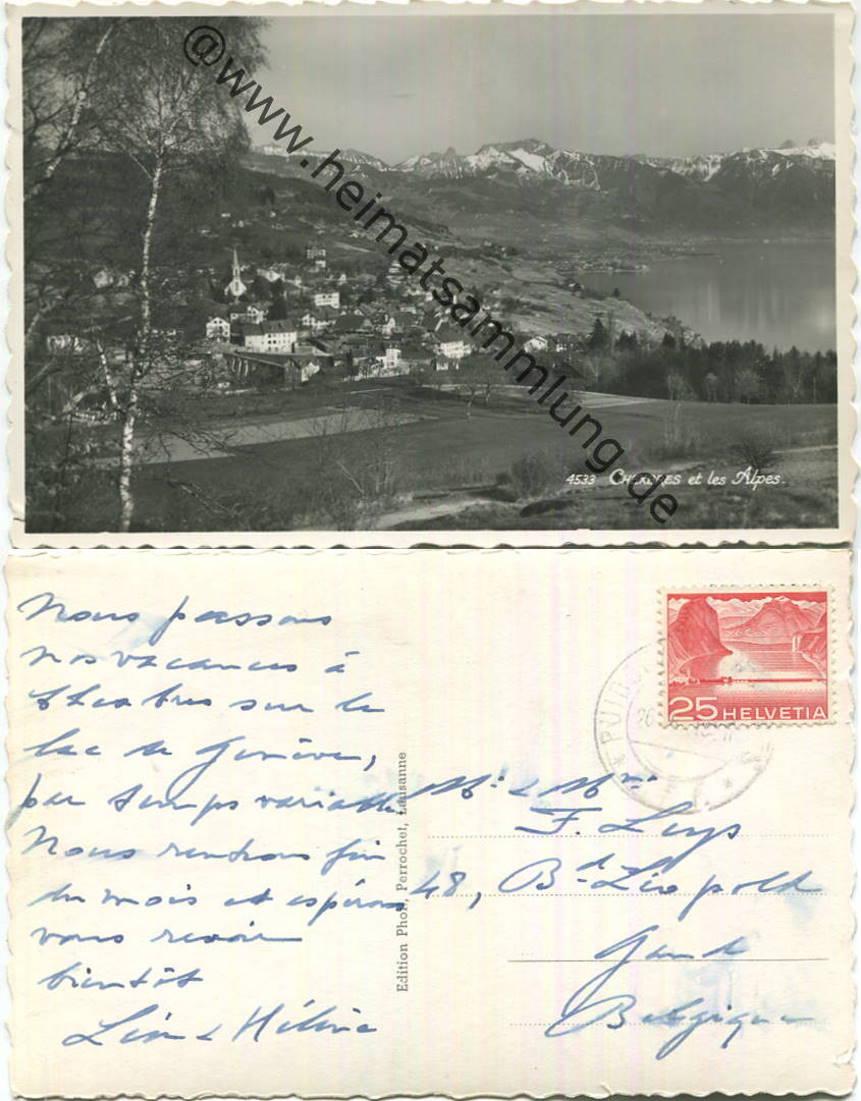 @www.heimatsammlung.de
4533 CHEXBRES et les Alpes.
Nous passons
nos vacances à
Chexbres sur le
lac de Genève,
par temps variable
Nous rentrons fin
du mois et espérons
vous revoir
bientôt
Léon & Hélène
Edition Phot. Perrochet, Lausanne
25 HELVETIA
Mr & Mme
F. Luys
48, Bd Léopold
Gand
Belgique